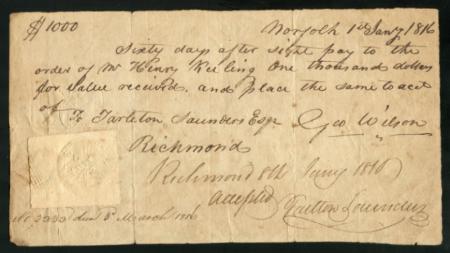 $1000
Norfolk 1st Jany 1816
Sixty days after sight pay to the
order of Mr Henry Keeling One thousand dollars
for value received. and place the same to acct
of
To Tarleton Saunders Esqr Geo Wilson
Richmond
Richmond 8th Jany 1816
accepted
Saunders
due 8 March 1816